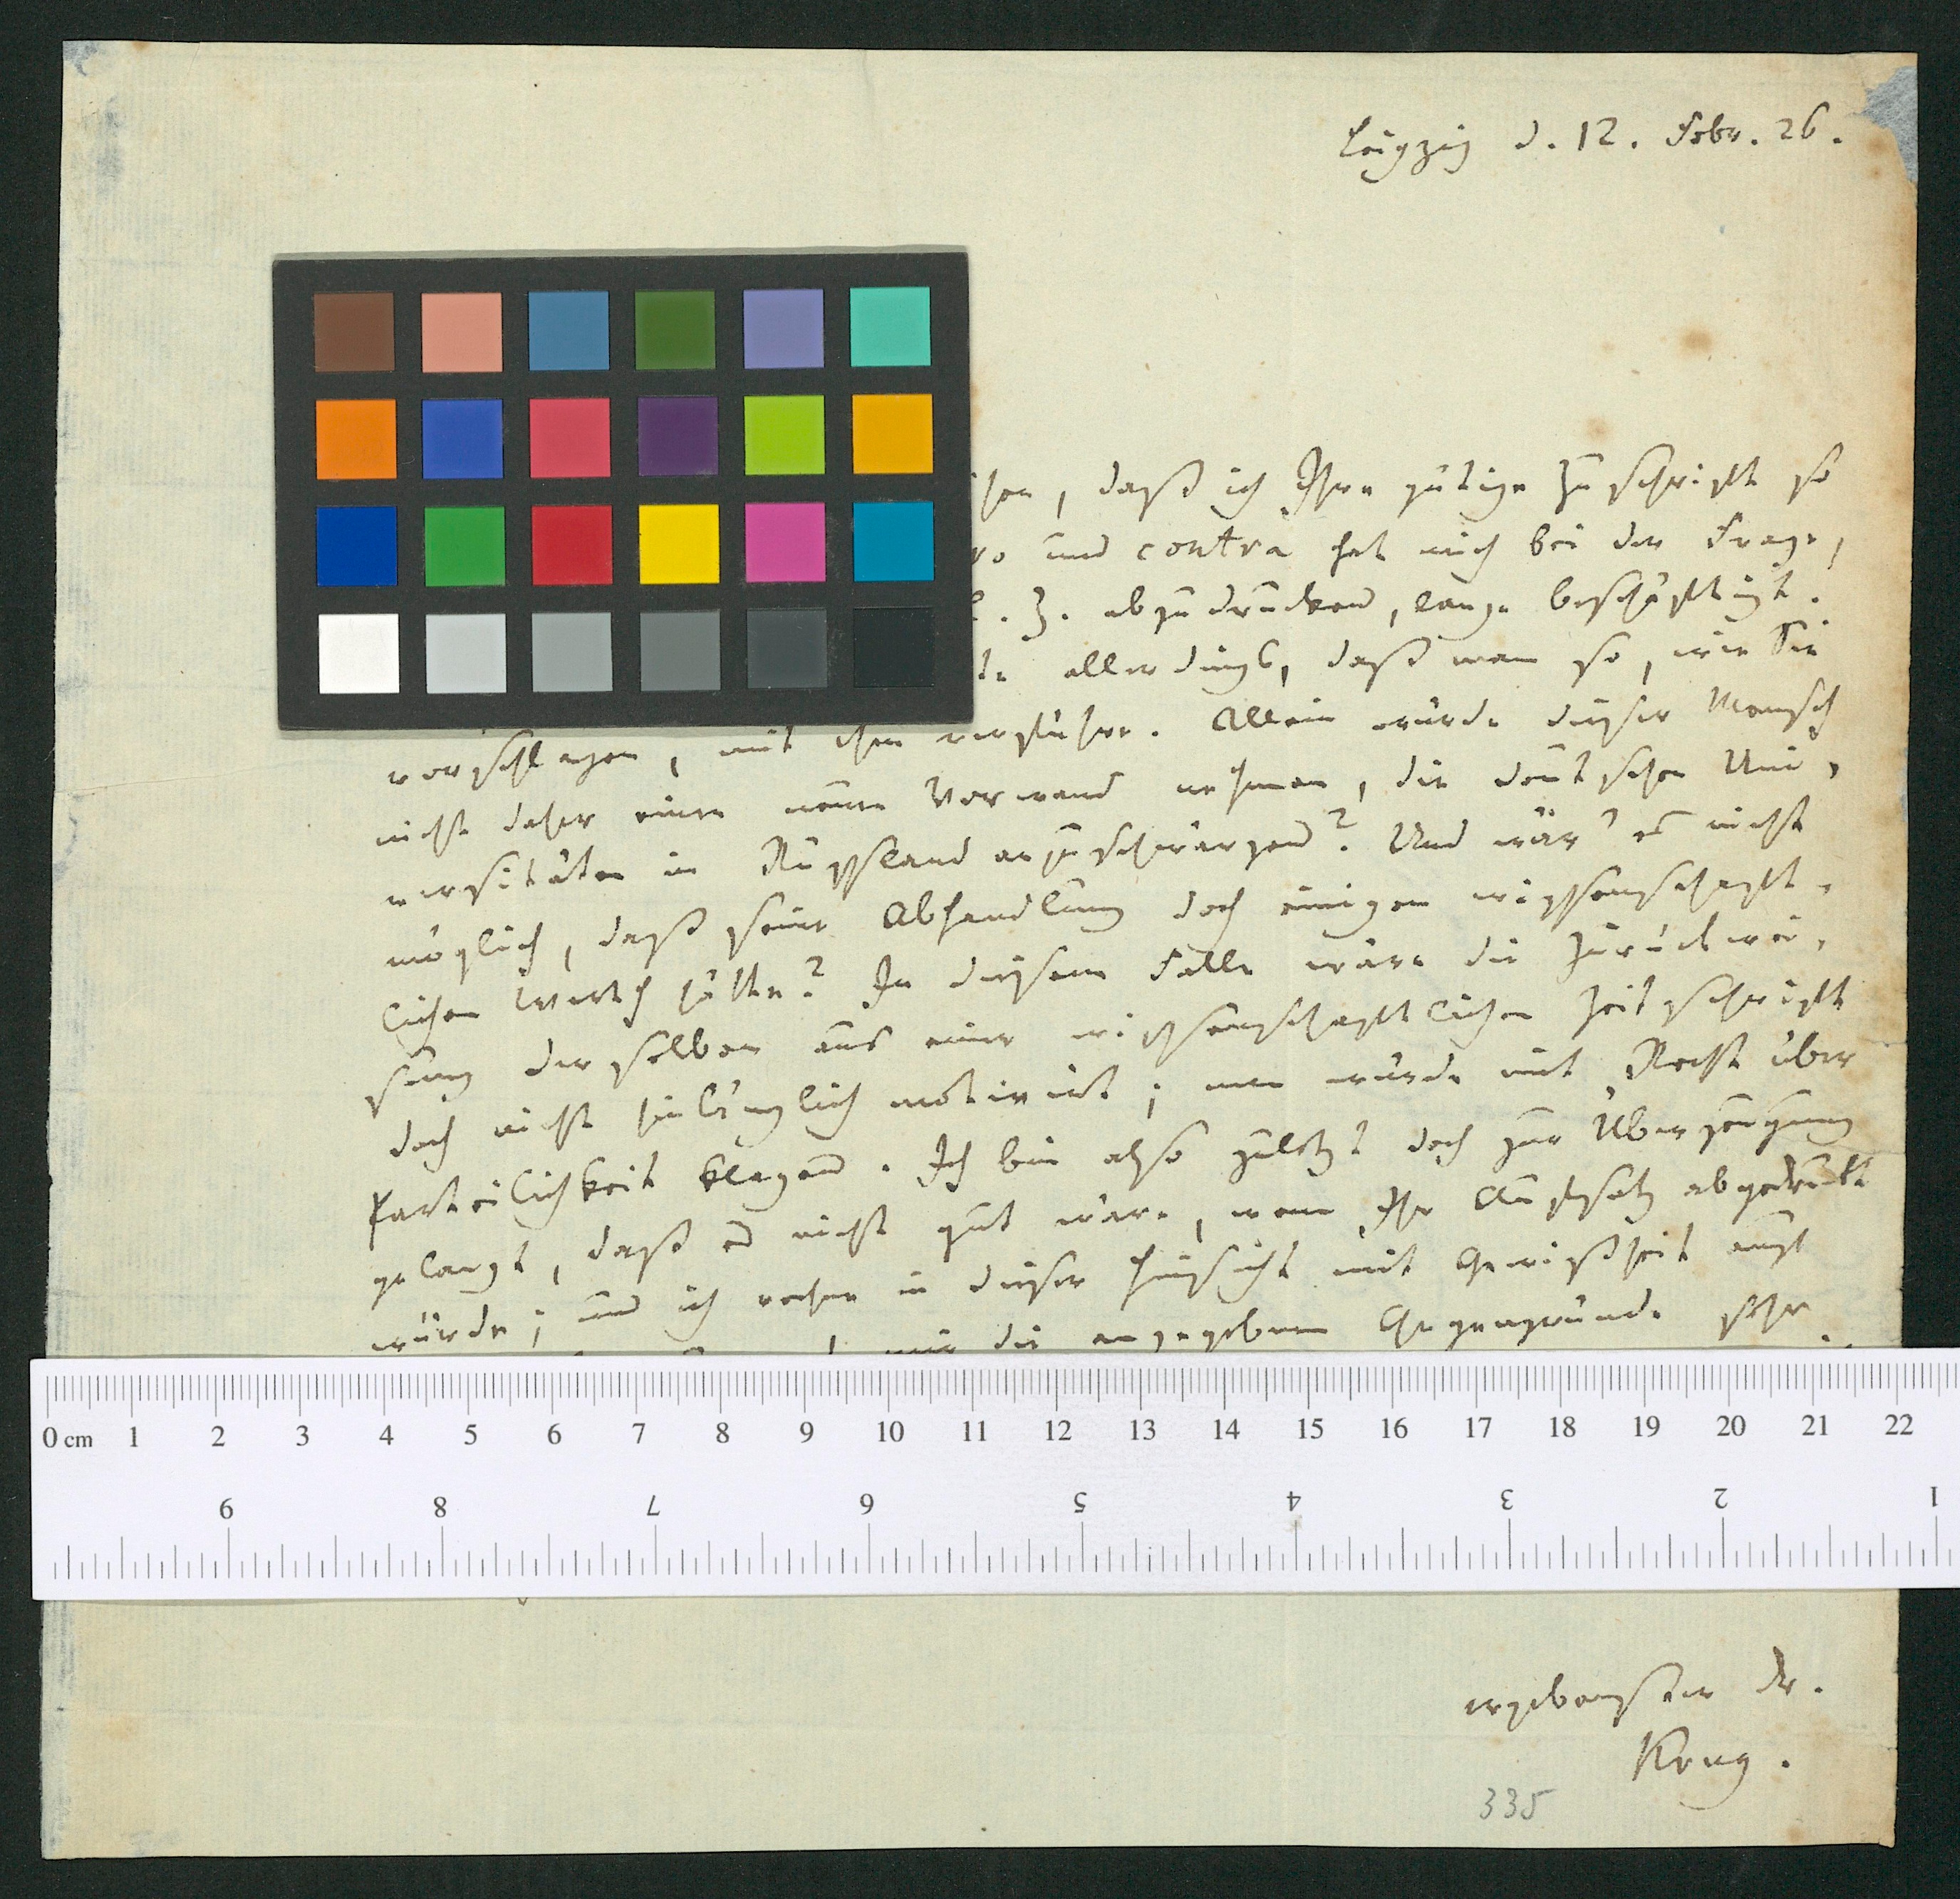 Leipzig d. 12. Febr. 26.
daß ich Ihre gütige Zuschrift so
und contra hat mich bei der Frage,
Z. abzudrucken, lange beschäftigt.
allerdings, daß man so, wie Sie
vorschlagen, mit ihm verführe. Allein würde dieser Mensch
nicht daher einen neuen Vorwand nehmen, die deutschen Uni-
versitäten in Russland anzuschwärzen? Und wär' es nicht
möglich, daß seine Abhandlung doch einigen wissenschaft-
lichen Werth hätte? In diesem Falle wäre die Zurückwei-
sung derselben aus einer wissenschaftlichen Zeitschrift
doch nicht hinlänglich motivirt; man würde mit Recht über
Parteilichkeit klagen. Ich bin also zuletzt doch zur Überzeugung
gelangt, daß es nicht gut wäre, wenn Ihr Aufsatz abgedruckt
würde; und ich rechne in dieser Hinsicht mit Gewißheit auf
die angegebenen Gegengründe sehr
0 cm 1 2 3 4 5 6 7 8 9 10 11 12 13 14 15 16 17 18 19 20 21 22
9 8 7 6 5 4 3 2 1
ergebenster Dr.
Krug.
335